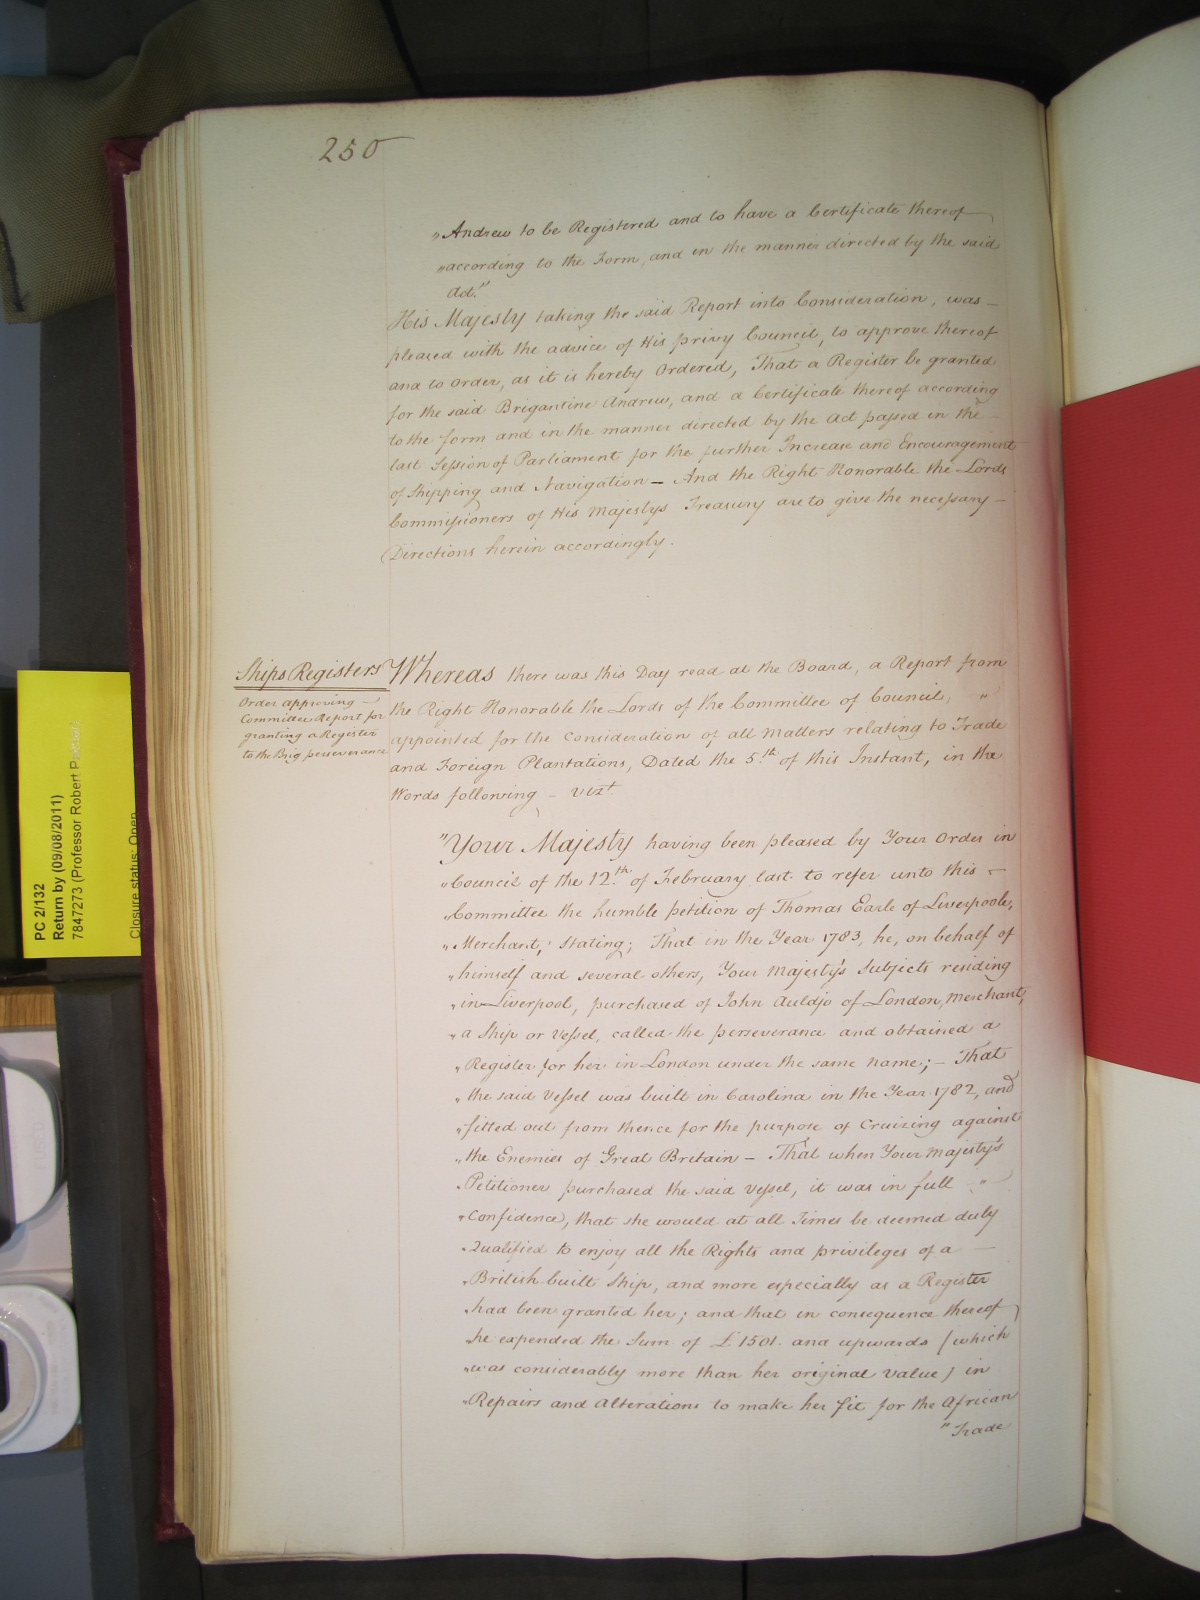 250
"Andrew to be Registered and to have a Certificate thereof
"according to the Form, and in the manner directed by the said
Act."
His Majesty taking the said Report into Consideration, was —
pleased with the advice of His privy Council, to approve thereof
and to Order, as it is hereby Ordered, That a Register be granted
for the said Brigantine Andrew, and a Certificate thereof according
to the form and in the manner directed by the Act passed in the —
last Session of Parliament for the further Increase and Encouragement
of Shipping and Navigation — And the Right Honorable the Lords
Commissioners of His Majestys Treasury are to give the necessary —
Directions herein accordingly.
Ships Registers
Order approving —
Committee Report for
granting a Register
to the Brig perseverance
Whereas there was this Day read at the Board, a Report from
the Right Honorable the Lords of the Committee of Council, "
appointed for the Consideration of all Matters relating to Trade
and Foreign Plantations, Dated the 5.th of this Instant, in the
Words following – vizt.
"Your Majesty having been pleased by Your Order in
"Council of the 12.th of February last to refer unto this —
"Committee the humble petition of Thomas Earle of Liverpoole,
"Merchant, stating; That in the Year 1783, he, on behalf of
"himself and several others, Your Majesty's Subjects residing
"in Liverpool, purchased of John Auldjo of London, Merchant,
"a Ship or Vessel, called the perseverance and obtained a
"Register for her in London under the same name; — That
"the said Vessel was built in Carolina in the Year 1782, and
"fitted out from thence for the purpose of Cruizing against
"the Enemies of Great Britain — That when Your Majesty's
"Petitioner purchased the said Vessel, it was in full "
"Confidence, that she would at all Times be deemed duly
"Qualified to enjoy all the Rights and privileges of a —
"British built Ship, and more especially as a Register
"had been granted her; and that in consequence thereof
"he expended the Sum of £1501. and upwards (which
"was considerably more than her original Value) in
"Repairs and Alterations to make her fit for the African
"Trade
PC 2/132
Return by (09/08/2011)
7847273 (Professor Robert
Closure status: Open